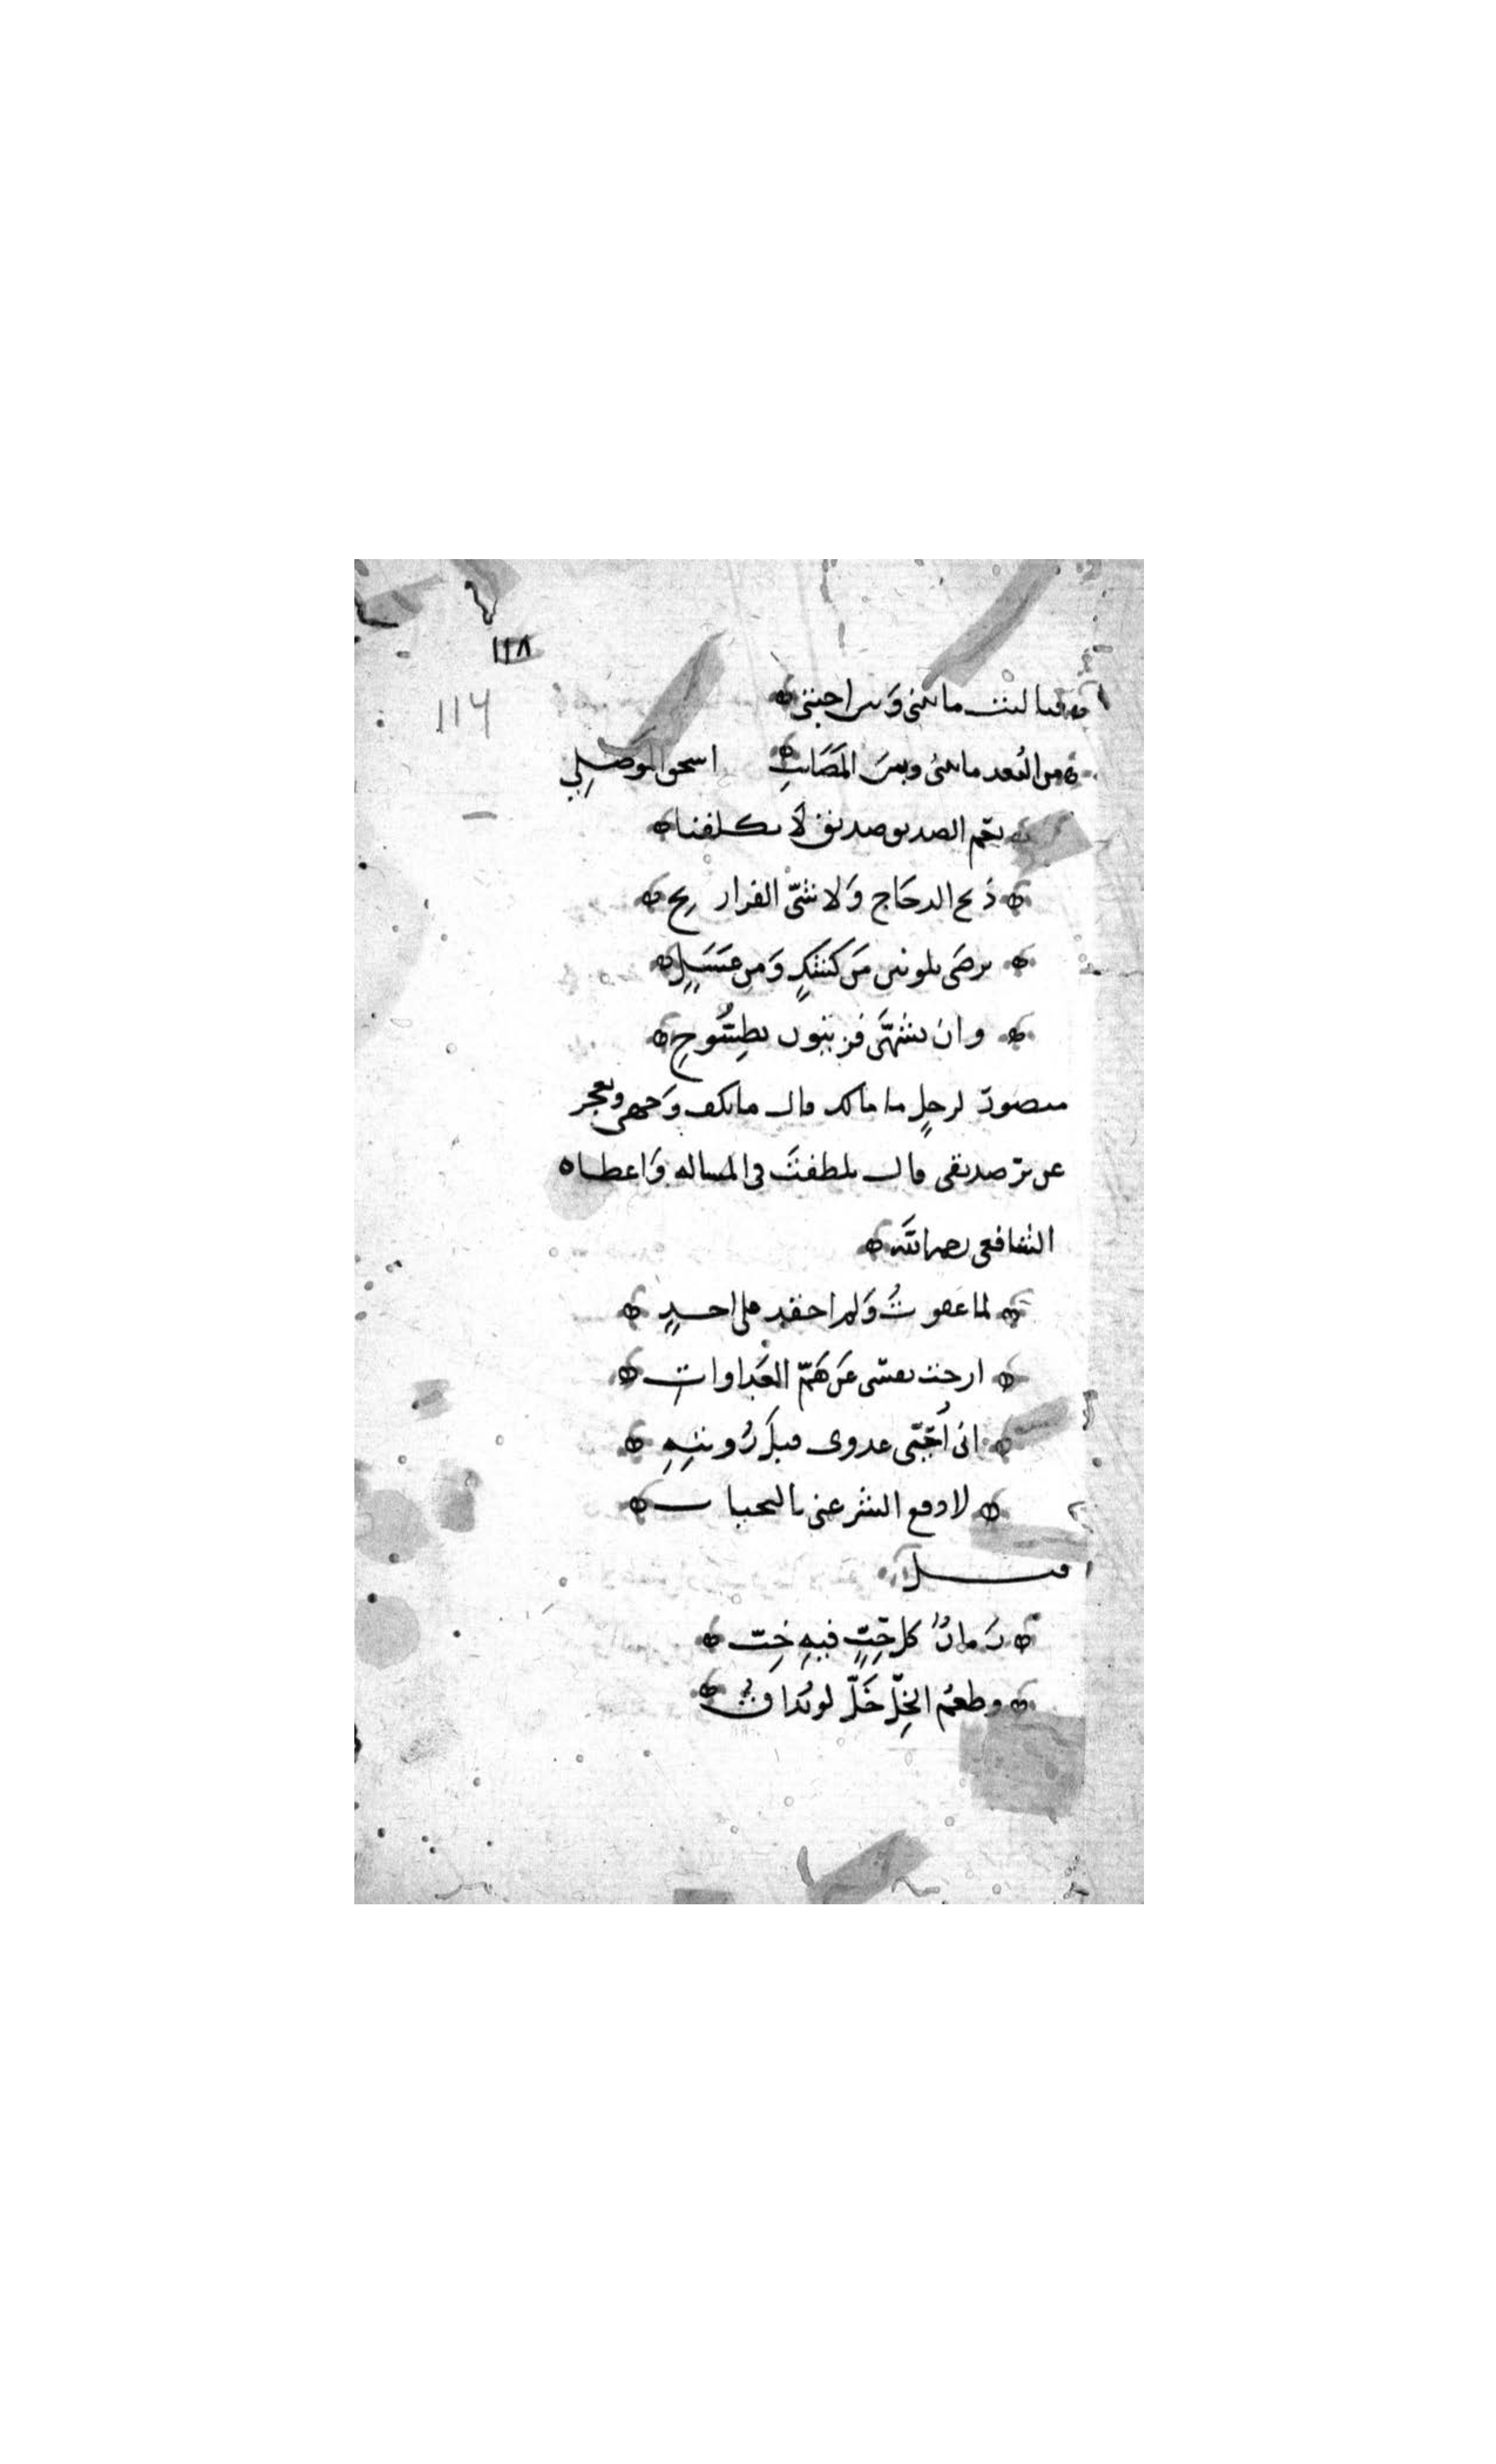 ١١٨
114
فيا ليت ما بيني وبين احبتي
من البعد ما بيني وبين المصائب اسحق الموصلي
نعم الصديق صديق لا يكلفنا
ذبح الدجاج ولا شيّ الفراريج
يرضى بلونين من كشكٍ ومن عسلٍ
وان تشهّى فزيتون بطسّوج
منصور لرجلٍ ما مالك قال ما يكف وجهي ويعجز
عن برّ صديقي قال تلطفتَ في المسالة واعطاه
الشافعي رحمه الله
لما عفوتُ ولم احقد على احدٍ
ارحت نفسي عن همّ العداوات
اني أُحيّي عدوي قبل رُويتهِ
لادفع الشر عني بالتحيات
قيل
زمانٌ كل حِبٍّ فيه خِبّ
وطعمُ الخِلّ خَلّ لو يُذاق